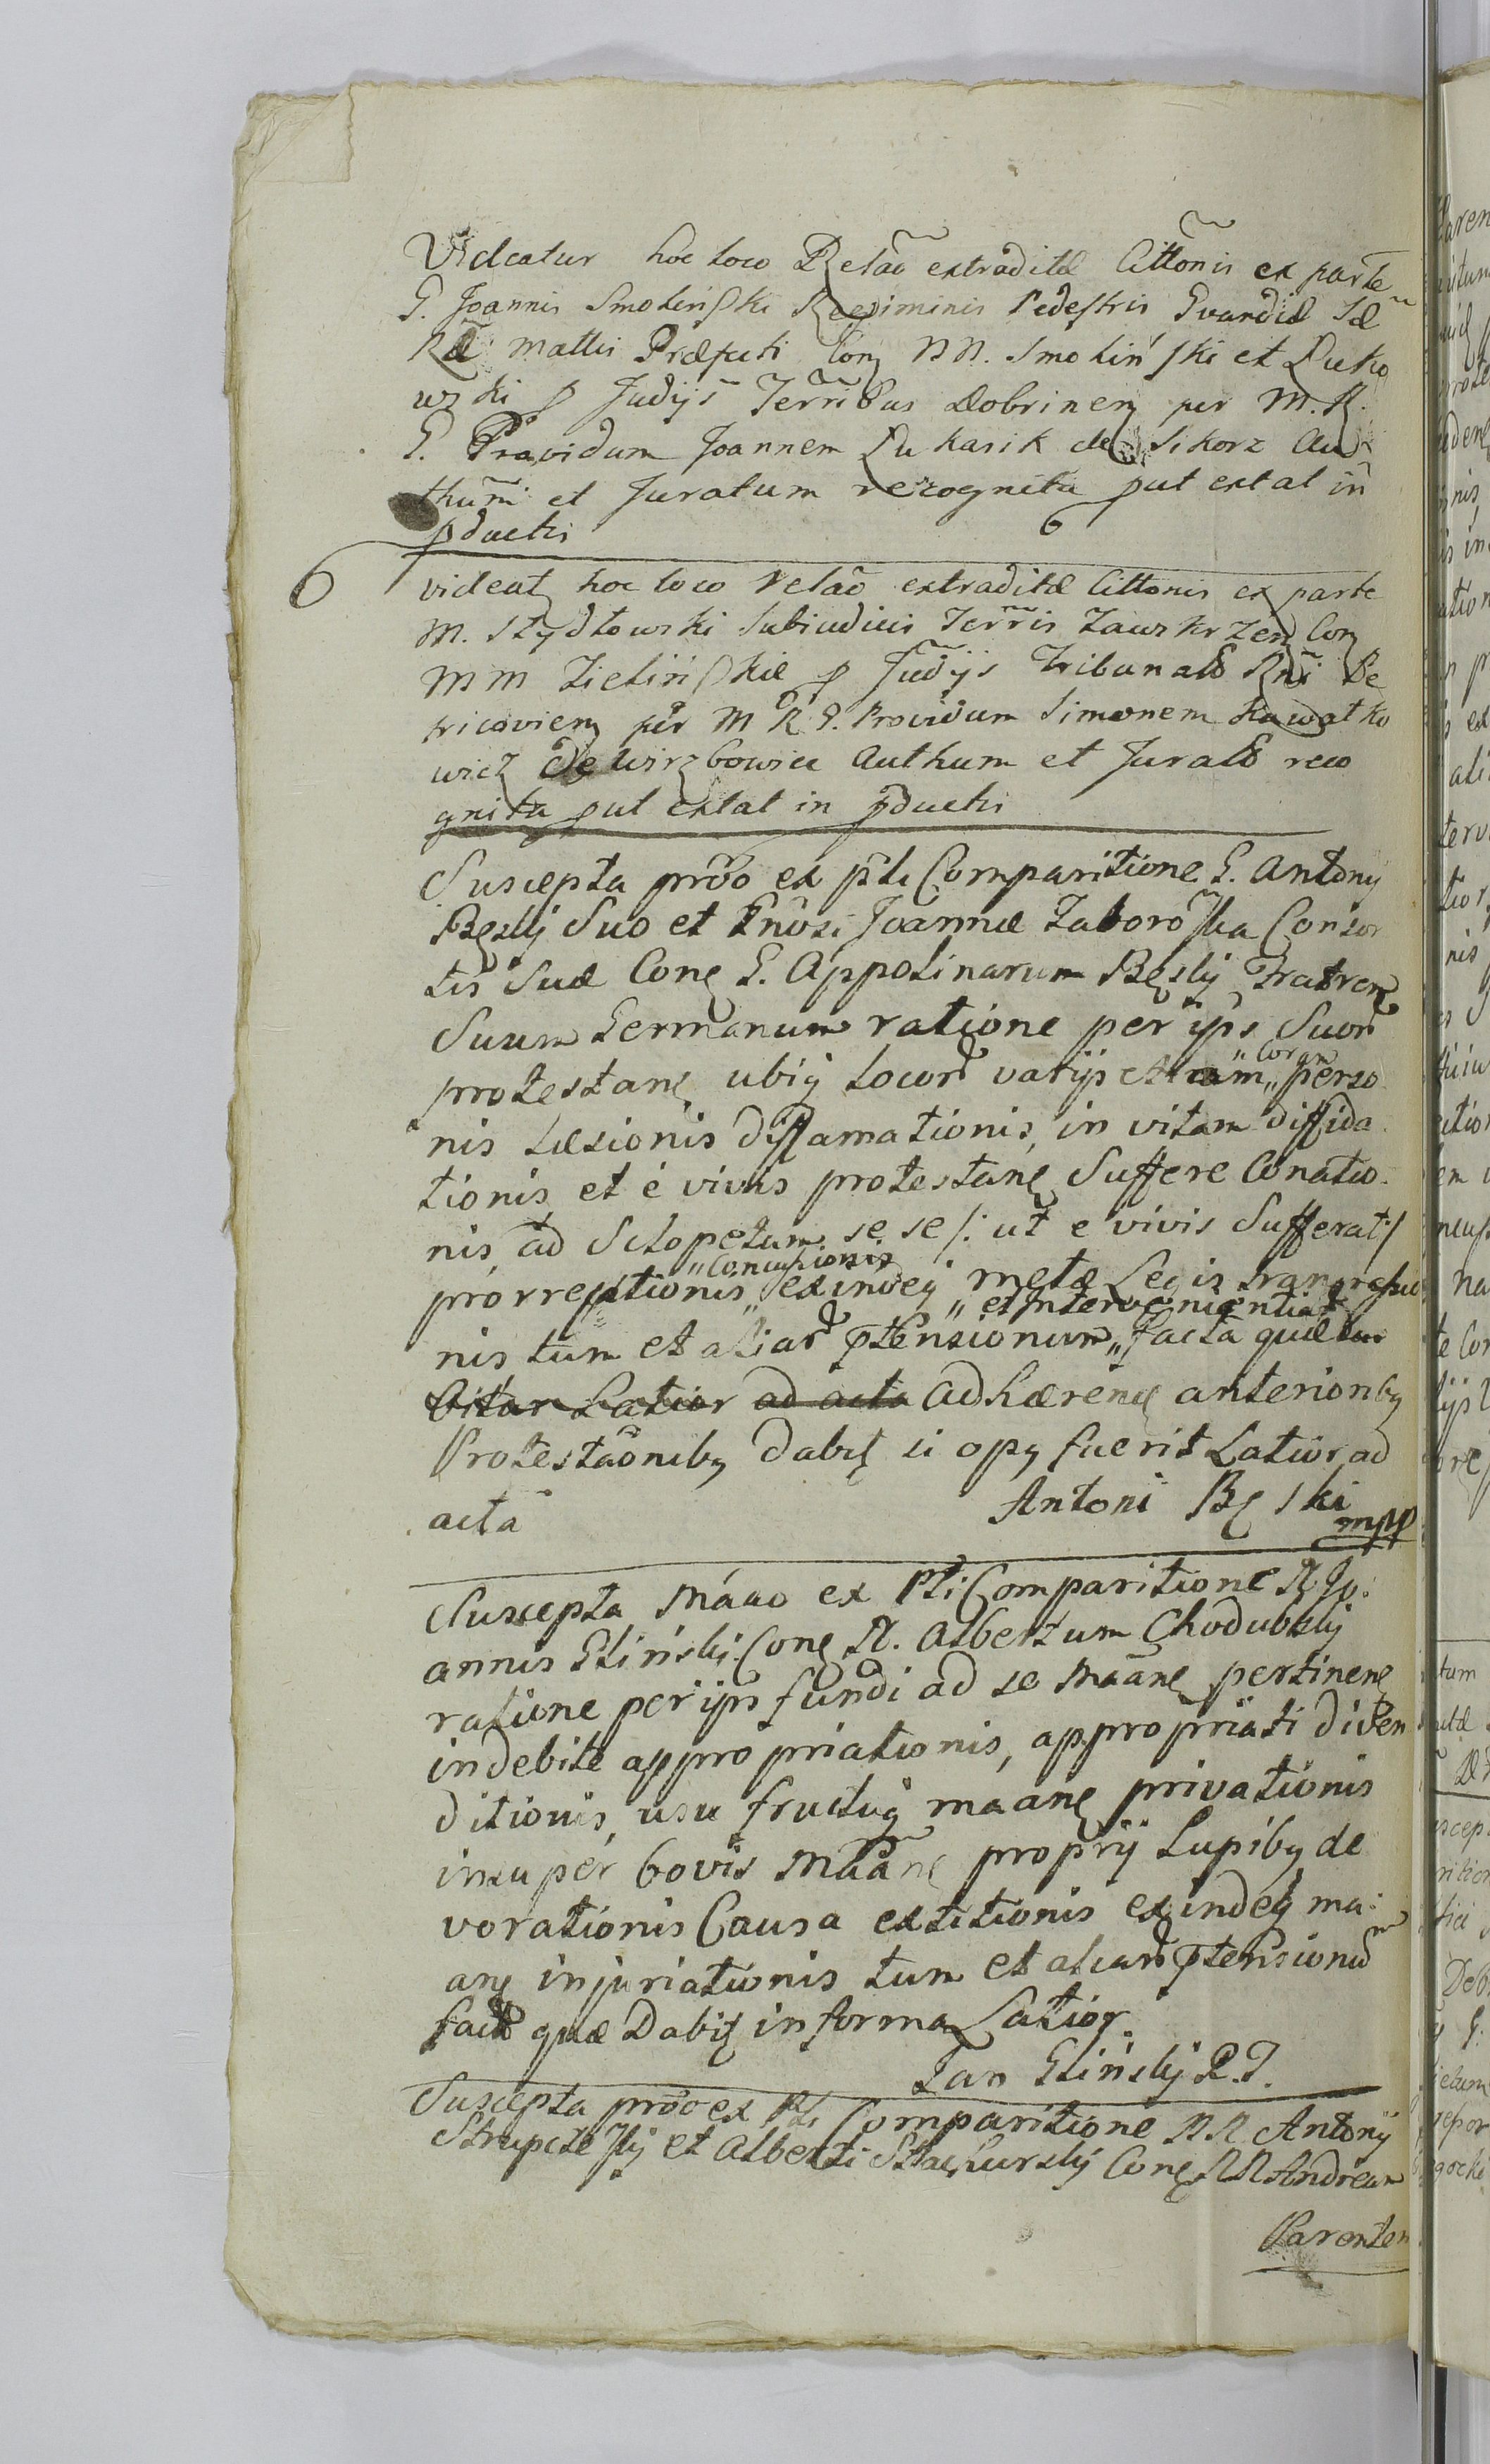 Videatur hoc loco Relao extraditæ Cittonis ex parte
G. Joannis Smolinski Regiminis Pedestris Gvardiæ Sæ
Ræ Mattis Præfecti Con NN. Smoliński et Łuko
wski p Judijs Terribus Dobrinen per M. R.
G. Providum Joannem Łukasik de Sikorz Au
thum et Juratum recognita put extat in
pductis 6
6 videat hoc loco Relao extraditæ Cittonis ex parte
M. Szydłowski Subiudicis Terris Zawskrzen Con
MM Zielińskie p Judijs Tribunal Rni Pe
tricovien per M R G. Providum Simonem
wicz de Wirzbowice Authum et Jurat reco
gnita put extat in pductis
Suscepta prōo ex pti Comparitione G. Antony
Bęskj Suo et Joannæ Zaboroska Consor
tis Suæ Conę G. Appolinarum Bęskj Fratrem
Suum Germanum ratione per ips Suor
protestanę ubiq locor varijs et coram perso
nis læsionis diffamationis, in vitam diffida
tionis et è vivis protestanę Suffere Conatio
nis, ad Sclopetum se se /: ut e vivis Sufferat /
prorreptionis „Concussionis„ exindeq metæ Legis transgressio
nis tum et aliar ptensionum „et Interveniential„ facta quæ
adhærenę anteriorib9
Protestaōnib9 dabit si op9 fuerit Latior ad
acta Antoni Bęski
mpp
Suscepta máao ex Pti Comparitione N. Jo:
annis Gliński Conę N. Albertum Chodubskj
ratione per ips fundi ad se Maanę pertinenę
indebite appropriationis, appropriati diven
ditionis, usu fructuq maanę privationis
insuper bovis Maanę proprij Lupib9 de
vorationis Causa extitionis exindeq ma:
anę injuriationis tum et aliar ptensionū
facta quæ Dabit in forma Latior.
Jan Glinskj P. T.
Suscepta prōo ex Pti Comparitione NN. Antonij
et Alberti Conę NN Andream
Parentem